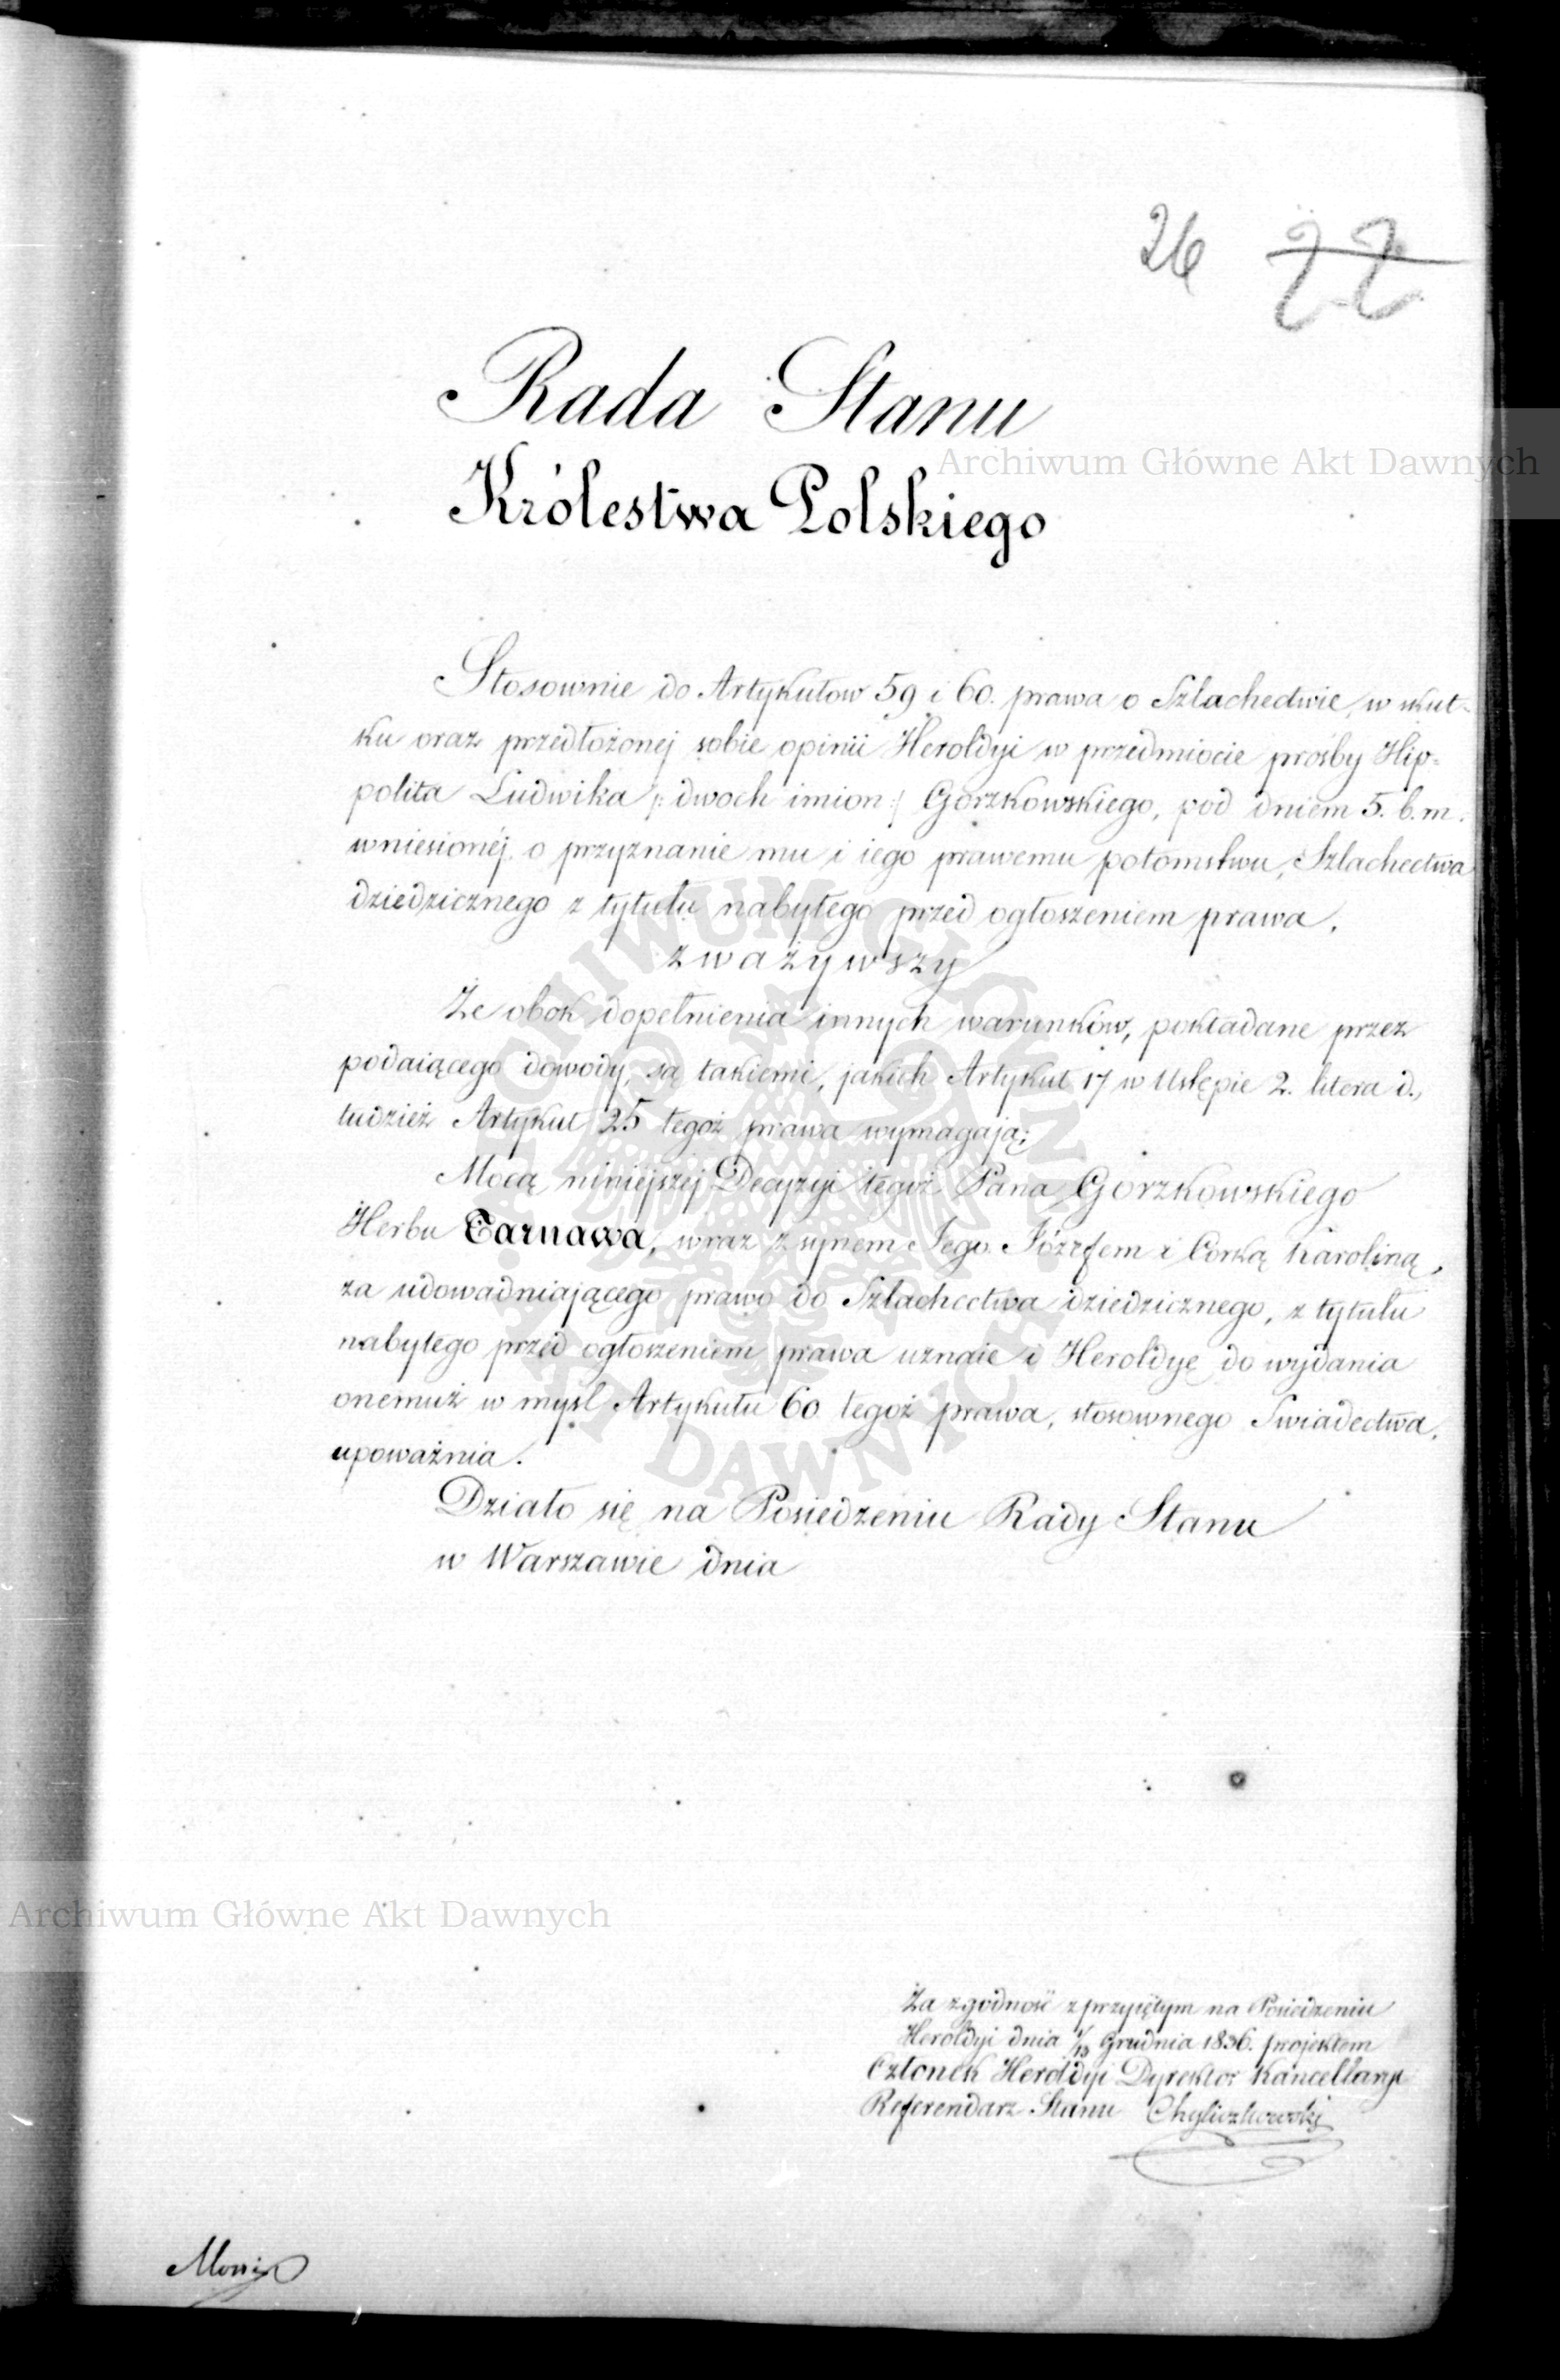 26 22
Rada Stanu
Archiwum Główne Akt Dawnych
Królestwa Polskiego
Stosownie do Artykułow 59 i 60. prawa o Szlachectwie, w skut-
ku oraz przedłożonej sobie opinii Heroldyi w przedmiocie prośby Hip-
polita Ludwika /: dwoch imion :/ Gorzkowskiego, pod dniem 5. b. m.
wniesionéj o przyznanie mu i iego prawemu potomstwu, Szlachectwa
dziedzicznego z tytułu nabytego przed ogłoszeniem prawa.
zważywszy
Że obok dopełnienia innych warunków, pokładane przez
podaiącego dowody, są takiemi, jakich Artykuł 17 w Ustępie 2. litera d.,
tudzież Artykuł 25 tegoż prawa wymagają;
Mocą niniejszej Decyzyi tegoż Pana Gorzkowskiego
Herbu Tarnawa, wraz z synem Jego Józefem i Corką Karoliną,
za udowadniającego prawo do Szlachectwa dziedzicznego, z tytułu
nabytego przed ogłoszeniem prawa uznaie i Heroldyę do wydania
onemuż w myśl Artykułu 60 tegoż prawa, stosownego Swiadectwa,
upoważnia.
Działo się na Posiedzeniu Rady Stanu
w Warszawie dnia
ARCHIWUM GŁÓWNE AKT DAWNYCH
Archiwum Główne Akt Dawnych
Za zgodność z przyiętym na Posiedzeniu
Heroldyi dnia 1/13 Grudnia 1836. projektem
Członek Heroldyi Dyrektor Kancellaryi
Referendarz Stanu Chyliczkowski